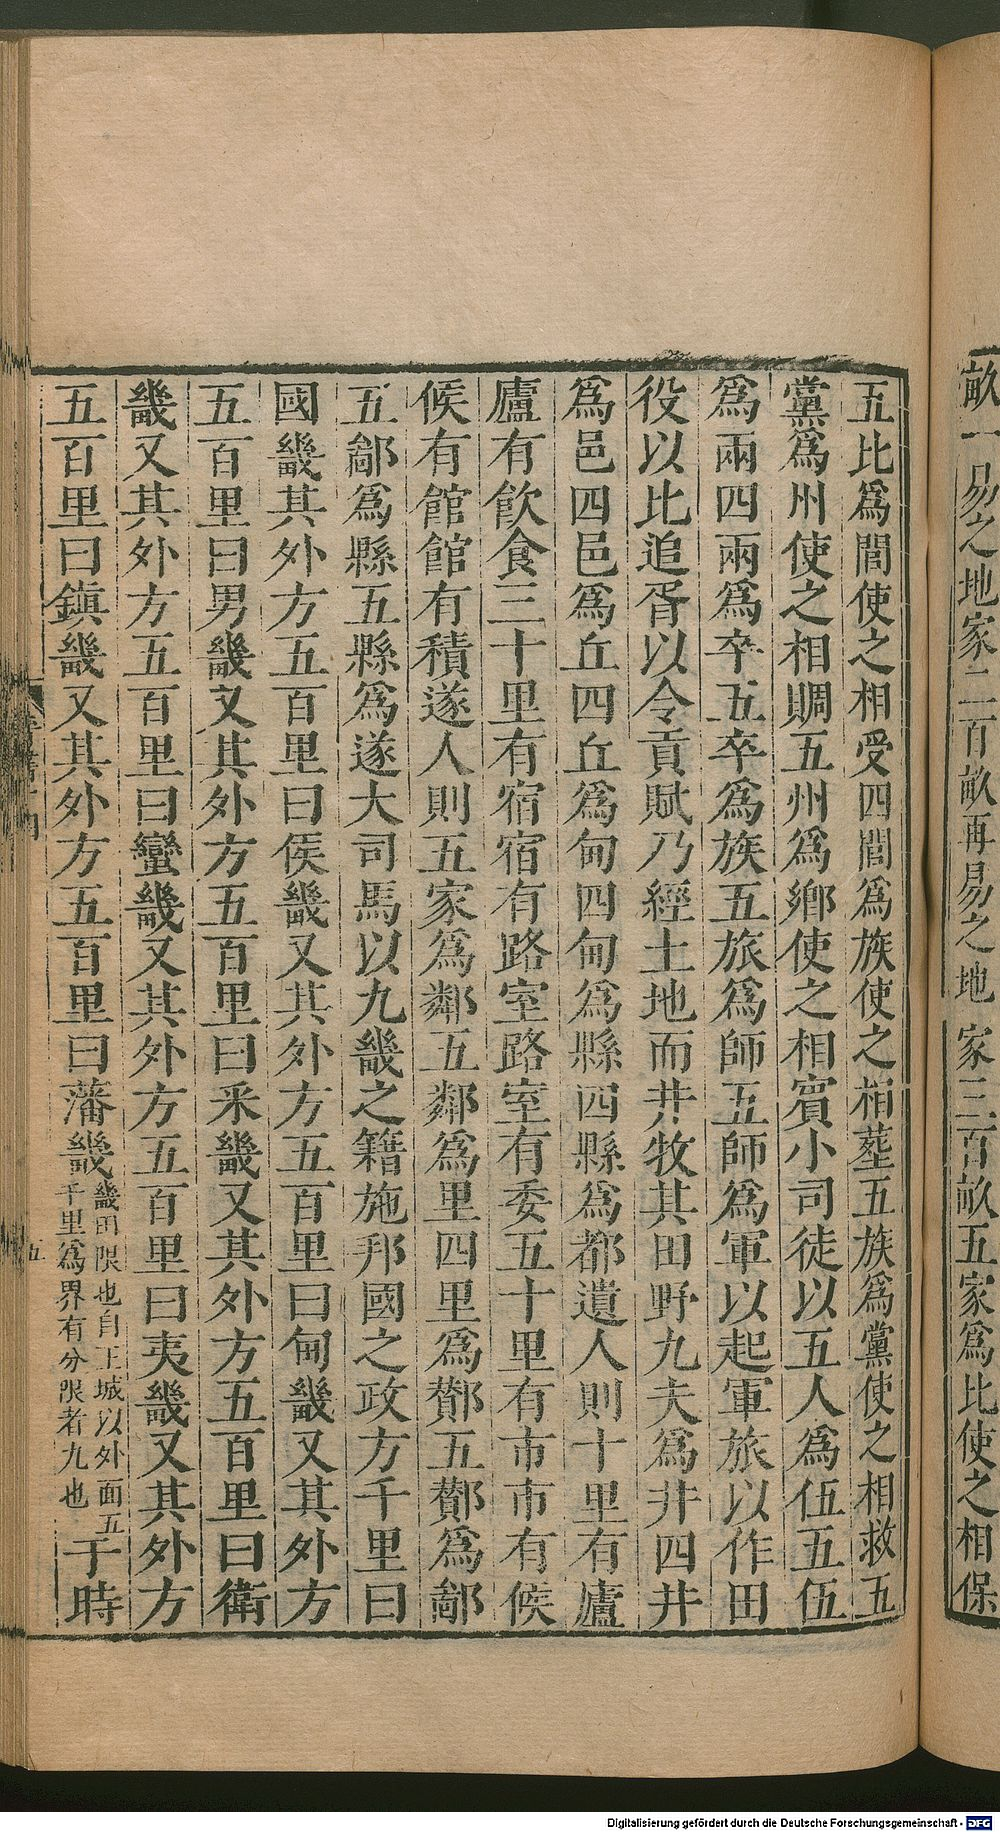 畝一易之地家二百畝再易之地家三百畝五家爲比使之相保
五比爲閭使之相受四閭爲族使之相塟五族爲黨使之相救五
黨爲州使之相賙五州爲鄉使之相賓小司徒以五人爲伍五伍
爲兩四兩爲卒五卒爲族五旅爲師五師爲軍以起軍旅以作田
役以比追胥以令貢賦乃經土地而井牧其田野九夫爲井四井
爲邑四邑爲丘四丘爲甸四甸爲縣四縣爲都遺人則十里有廬
廬有飲食三十里有宿宿有路室路室有委五十里有市市有候
候有館館有積遂人則五家爲鄰五鄰爲里四里爲酇五酇爲鄙
五鄙爲縣五縣爲遂大司馬以九畿之籍施邦國之政方千里曰
國畿其外方五百里曰侯畿又其外方五百里曰甸畿又其外方
五百里曰男畿又其外方五百里曰采畿又其外方五百里曰衛
畿又其外方五百里曰蠻畿又其外方五百里曰夷畿又其外方
五百里曰鎮畿又其外方五百里曰藩畿
畿田限也自王城以外面五
千里爲界有分限者九也
于時
五
Digitalisierung gefördert durch die Deutsche Forschungsgemeinschaft - DFG